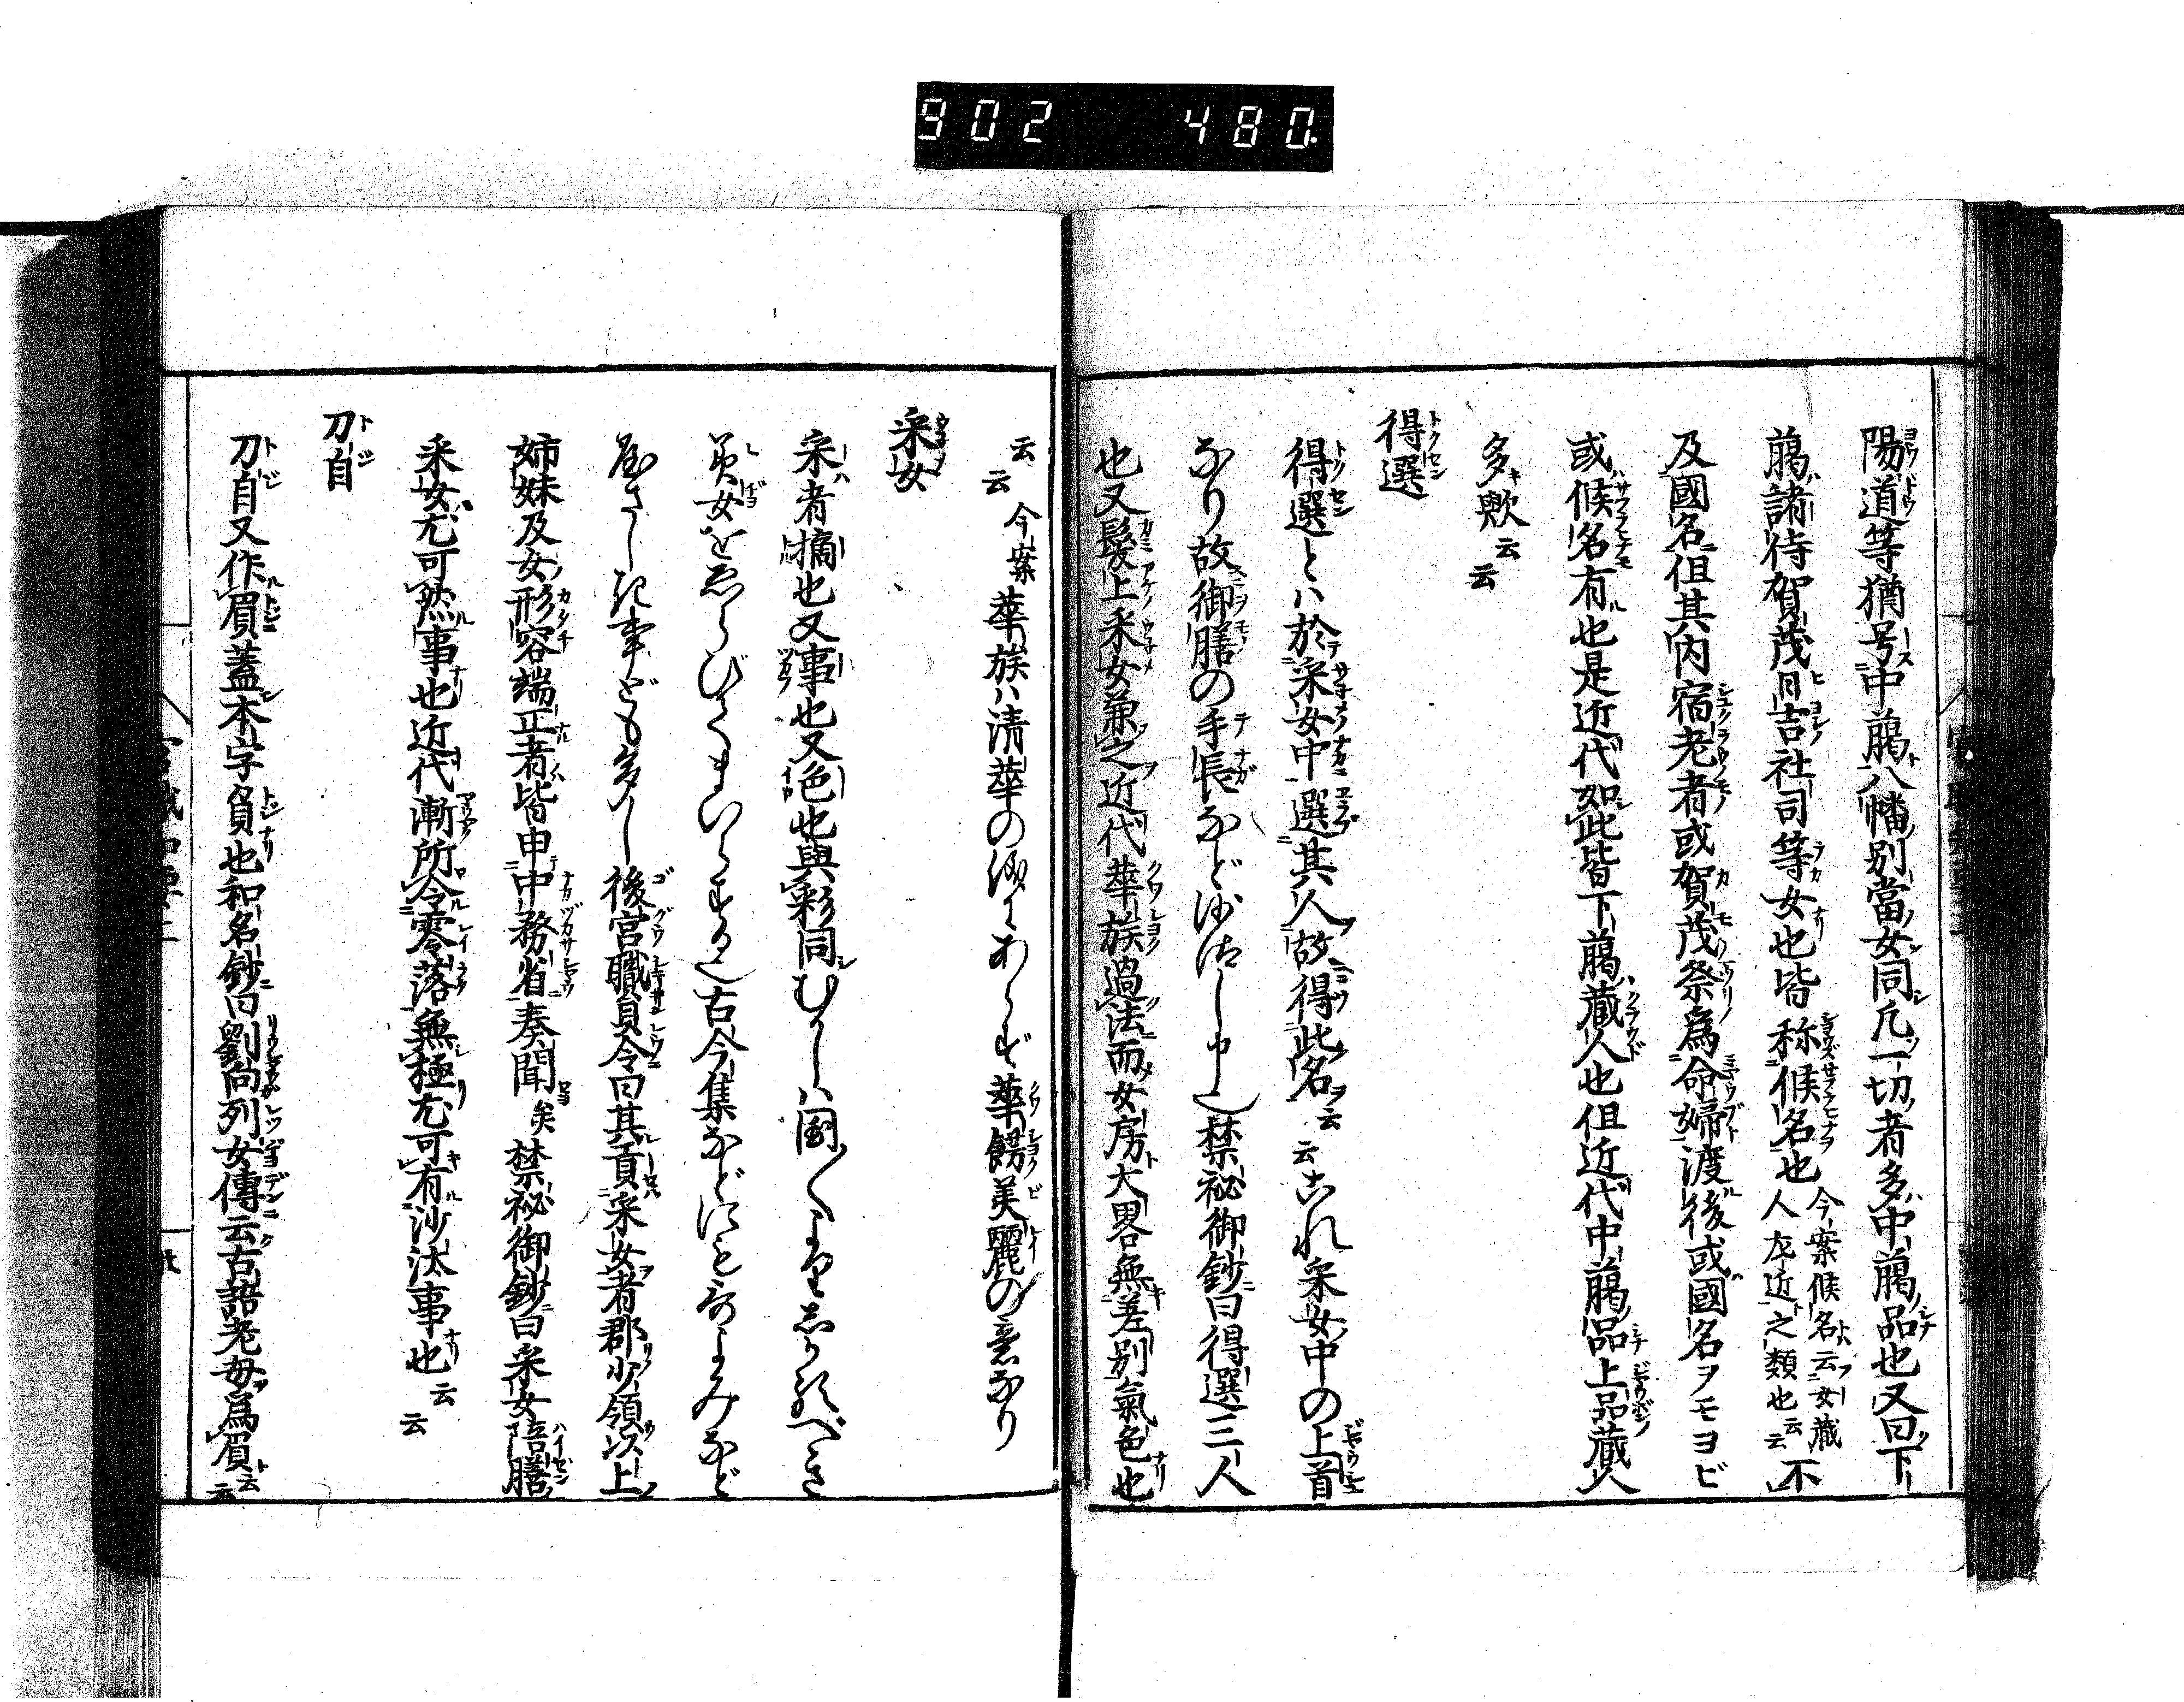 902 480
陽道等猶号中﨟八幡別當女同凡一切者多中﨟品也又曰下
﨟諸侍賀茂日吉社司等女也皆称候名也今案候名云女蔵人左近之類也云云不
及國名但其内宿老者或賀茂祭爲命婦渡後或國名ヲモヨビ
或候名有也是近代如此皆下﨟蔵人也但近代中﨟品上品蔵人
多歟云云
得選
得選とハ於采女中選其人故得此名云云これ采女中の上首
なり故御膳の手長など沙汰し申也禁秘御鈔曰得選三人
也又髮上采女兼之近代華族過法而女房大畧無差別氣色也
云云今案華族ハ清華の儀にあらず華餝美麗の意なり
采女
采者摘也又事也又色也與彩同むかしハ國〱よりしかるべき
美女をゑらびてまいらする也古今集などにも哥よみなど
やさしき事ども多し後宮職員令曰其貢采女者郡少領以上
姉妹及女形容端正者皆申中務省奏聞矣禁秘御鈔曰采女陪膳
采女尤可然事也近代漸所令零落無極尤可有沙汰事也云云
刀自
刀自又作屓蓋本字負也和名鈔曰劉向列女傳云古語老母爲屓云云